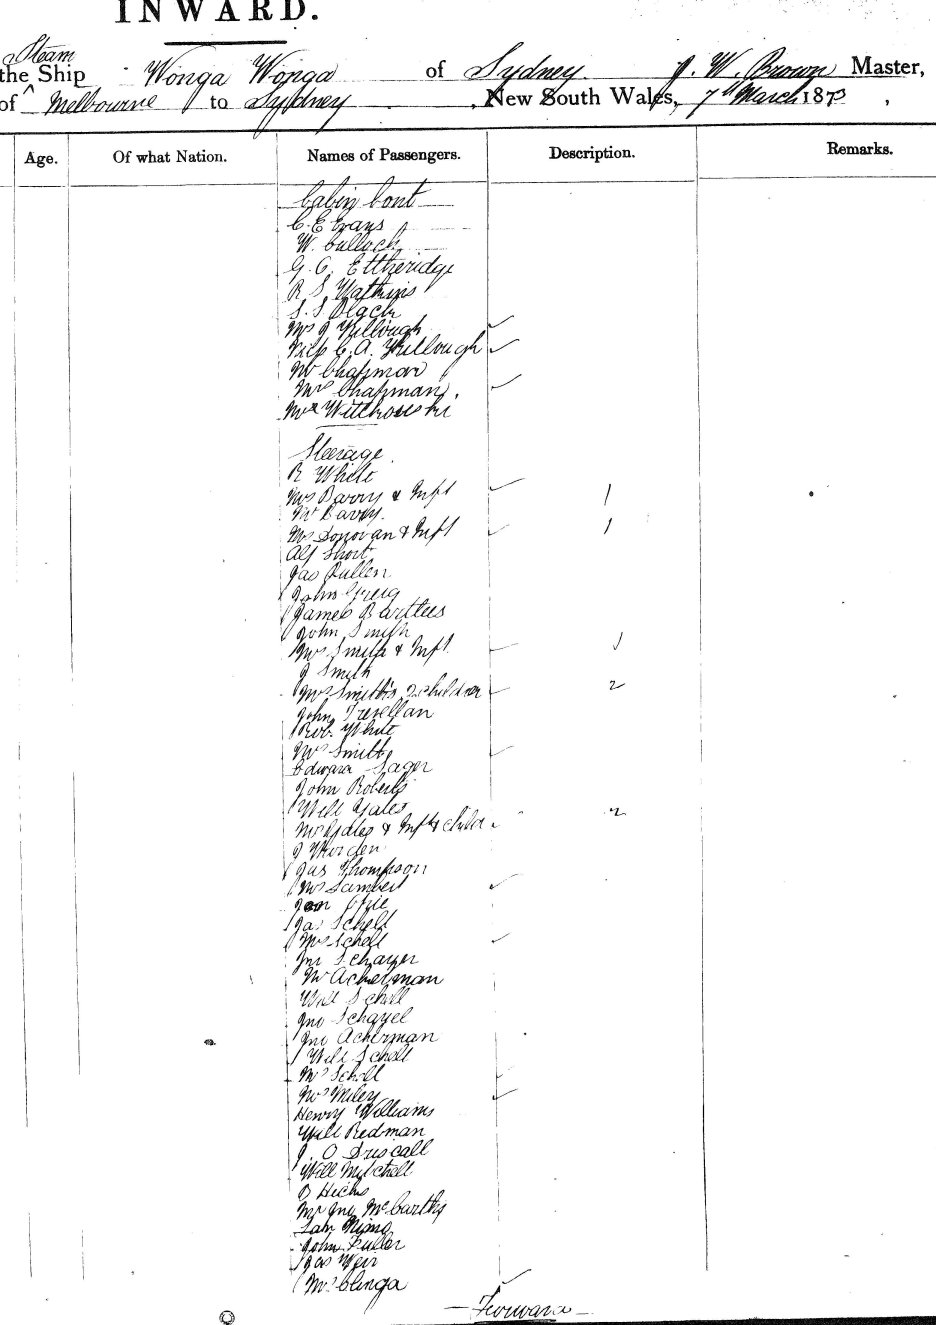 INWARD.
Steam
the Ship Wonga Wonga of Sydney J. W. Brown Master,
of Melbourne to Sydney, New South Wales, 7th March 1873,
Age. Of what Nation. Names of Passengers. Description. Remarks.
Cabin Cont
C. E Evans
W. Culloch
G. C. Ettheridge
R S Watkins
S. S.
Mrs J Killough
Miss C. A. Killough
Mr Chapman
Mrs Chapman.
Mr Witchouski
Steerage
R White
Mrs Barry & Inft 1
Mr Barry.
Mrs Donovan & Inft 1
Alf Short
Jas Pullen
John Greig
James Bartlees
John Smith
Mrs Smith & Inft. 1
J Smith
Mrs Smith's 2 children 2
John Trevellan
Rob. White
Mrs Smith
Edward Sager
John Roberts
Will Yates
Mrs Yates & Inft & child 2
J Worden
Jas Thompson
Mrs Lambert
Jas Schell
Mrs Schell
Jno Schayer
Mr Ackerman
Will Schell
Jno Schayel
Jno Ackerman
Will Schell
Mrs Schell
Mrs Miley
Henry Williams
Will Redman
J. O Driscall
Will Mitchell
B Hicks
Mr Jno McCarthy
Sah Nimo
John Fuller
Jas Weir
Mrs Clinga
— Forward —